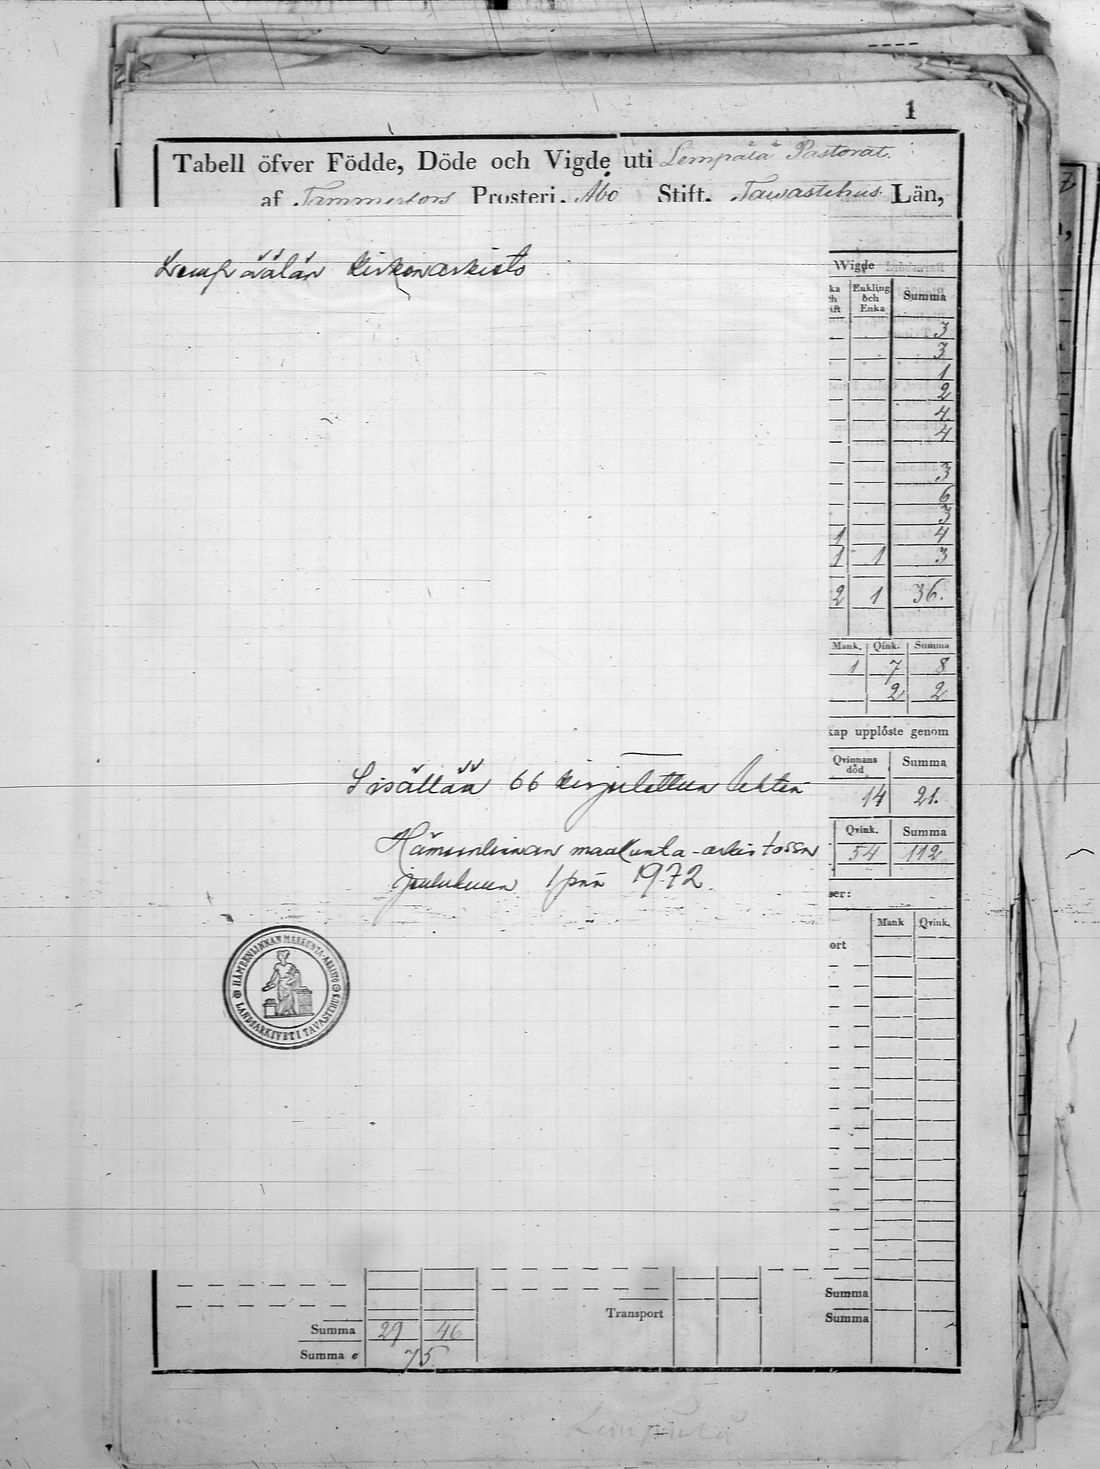 1
Tabell öfver Födde, Döde och Vigde uti Lempälä Pastorat.
af Tammerfors Prosteri, Åbo Stift, Tawastehus Län,
Lempäälän kirkonarkisto
Wigde
ka Enkling Summa
ch och
ift Enka
3
3
1
2
4
4
3
6
3
1 4
1 1 3
2 1 36.
Mank. Qink. Summa
1 7 8
2 2
kap upplöste genom
Qvinnans Summa
död
14 21.
Sisältää 66 kirjoitettua lehteä
Qvink. Summa
54 112
Hämeenlinnan maakunta-arkistossa
joulukuun 1 pnä 1972.
ser:
Mank Qvink.
ort
HÄMEENLINNAN MAAKUNTA-ARKISTO
LANDSARKIVET I TAVASTEHUS
Summa
Transport Summa
Summa 29 46
Summa e 75.
Lempälä